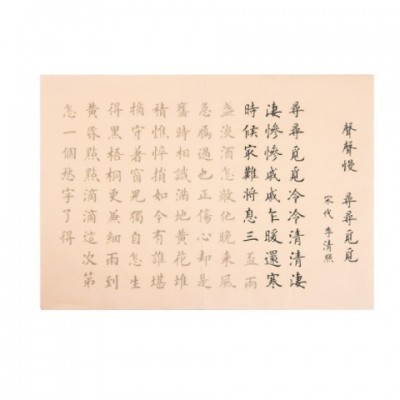 聲聲慢 尋尋覓覓
宋代 李清照
尋尋覓覓冷冷清清淒
淒慘慘戚戚乍暖還寒
時候最難將息三盃兩
盞淡酒怎敵他晚來風
急雁過也正傷心卻是
舊時相識滿地黃花堆
積憔悴損如今有誰堪
摘守著窗兒獨自怎生
得黑梧桐更兼細雨到
黃昏點點滴滴這次第
怎一個愁字了得